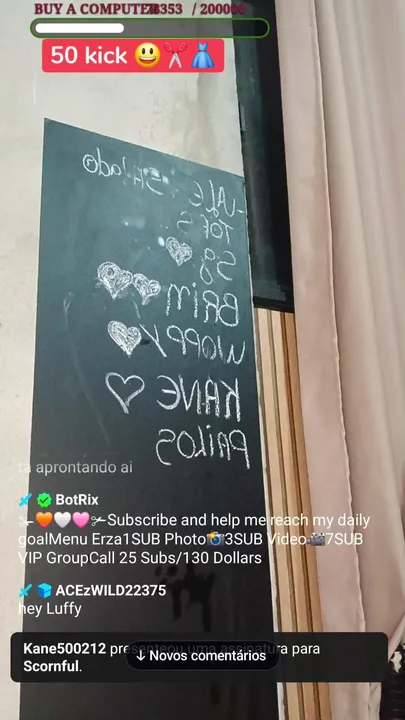 BUY A COMPUTER 78353 / 200000
50 kick 😃✂️👗
ALE
TOE
SG
BRIM
WOPPY
KANE
PAILOS
ta aprontando ai
BotRix
✂🧡🤍🩷✂Subscribe and help me reach my daily
goalMenu Erza1SUB Photo📸3SUB Video🎥7SUB
VIP GroupCall 25 Subs/130 Dollars
ACEzWILD22375
hey Luffy
Kane500212 presenteou uma assinatura para
Scornful.
↓ Novos comentários